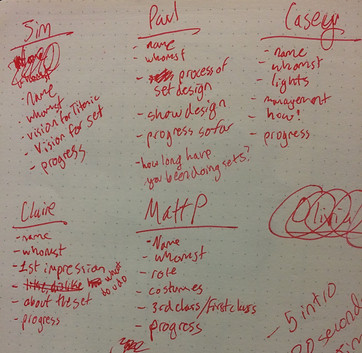 Jim
- name
- whomst
- vision for Titanic
- Vision for set
- progress
Paul
- name
- whomst
- process of
set design
- show design
- progress so far
- how long have
you been doing sets?
Casey
- name
- whomst
- lights
- management
- how?
- progress
Claire
- name
- whomst
- 1st impression
- what
to do
- about the set
- progress
Matt P
- Name
- whomst
- role
- costumes
- 3rd class/first class
- progress
- 5 intro
20 second